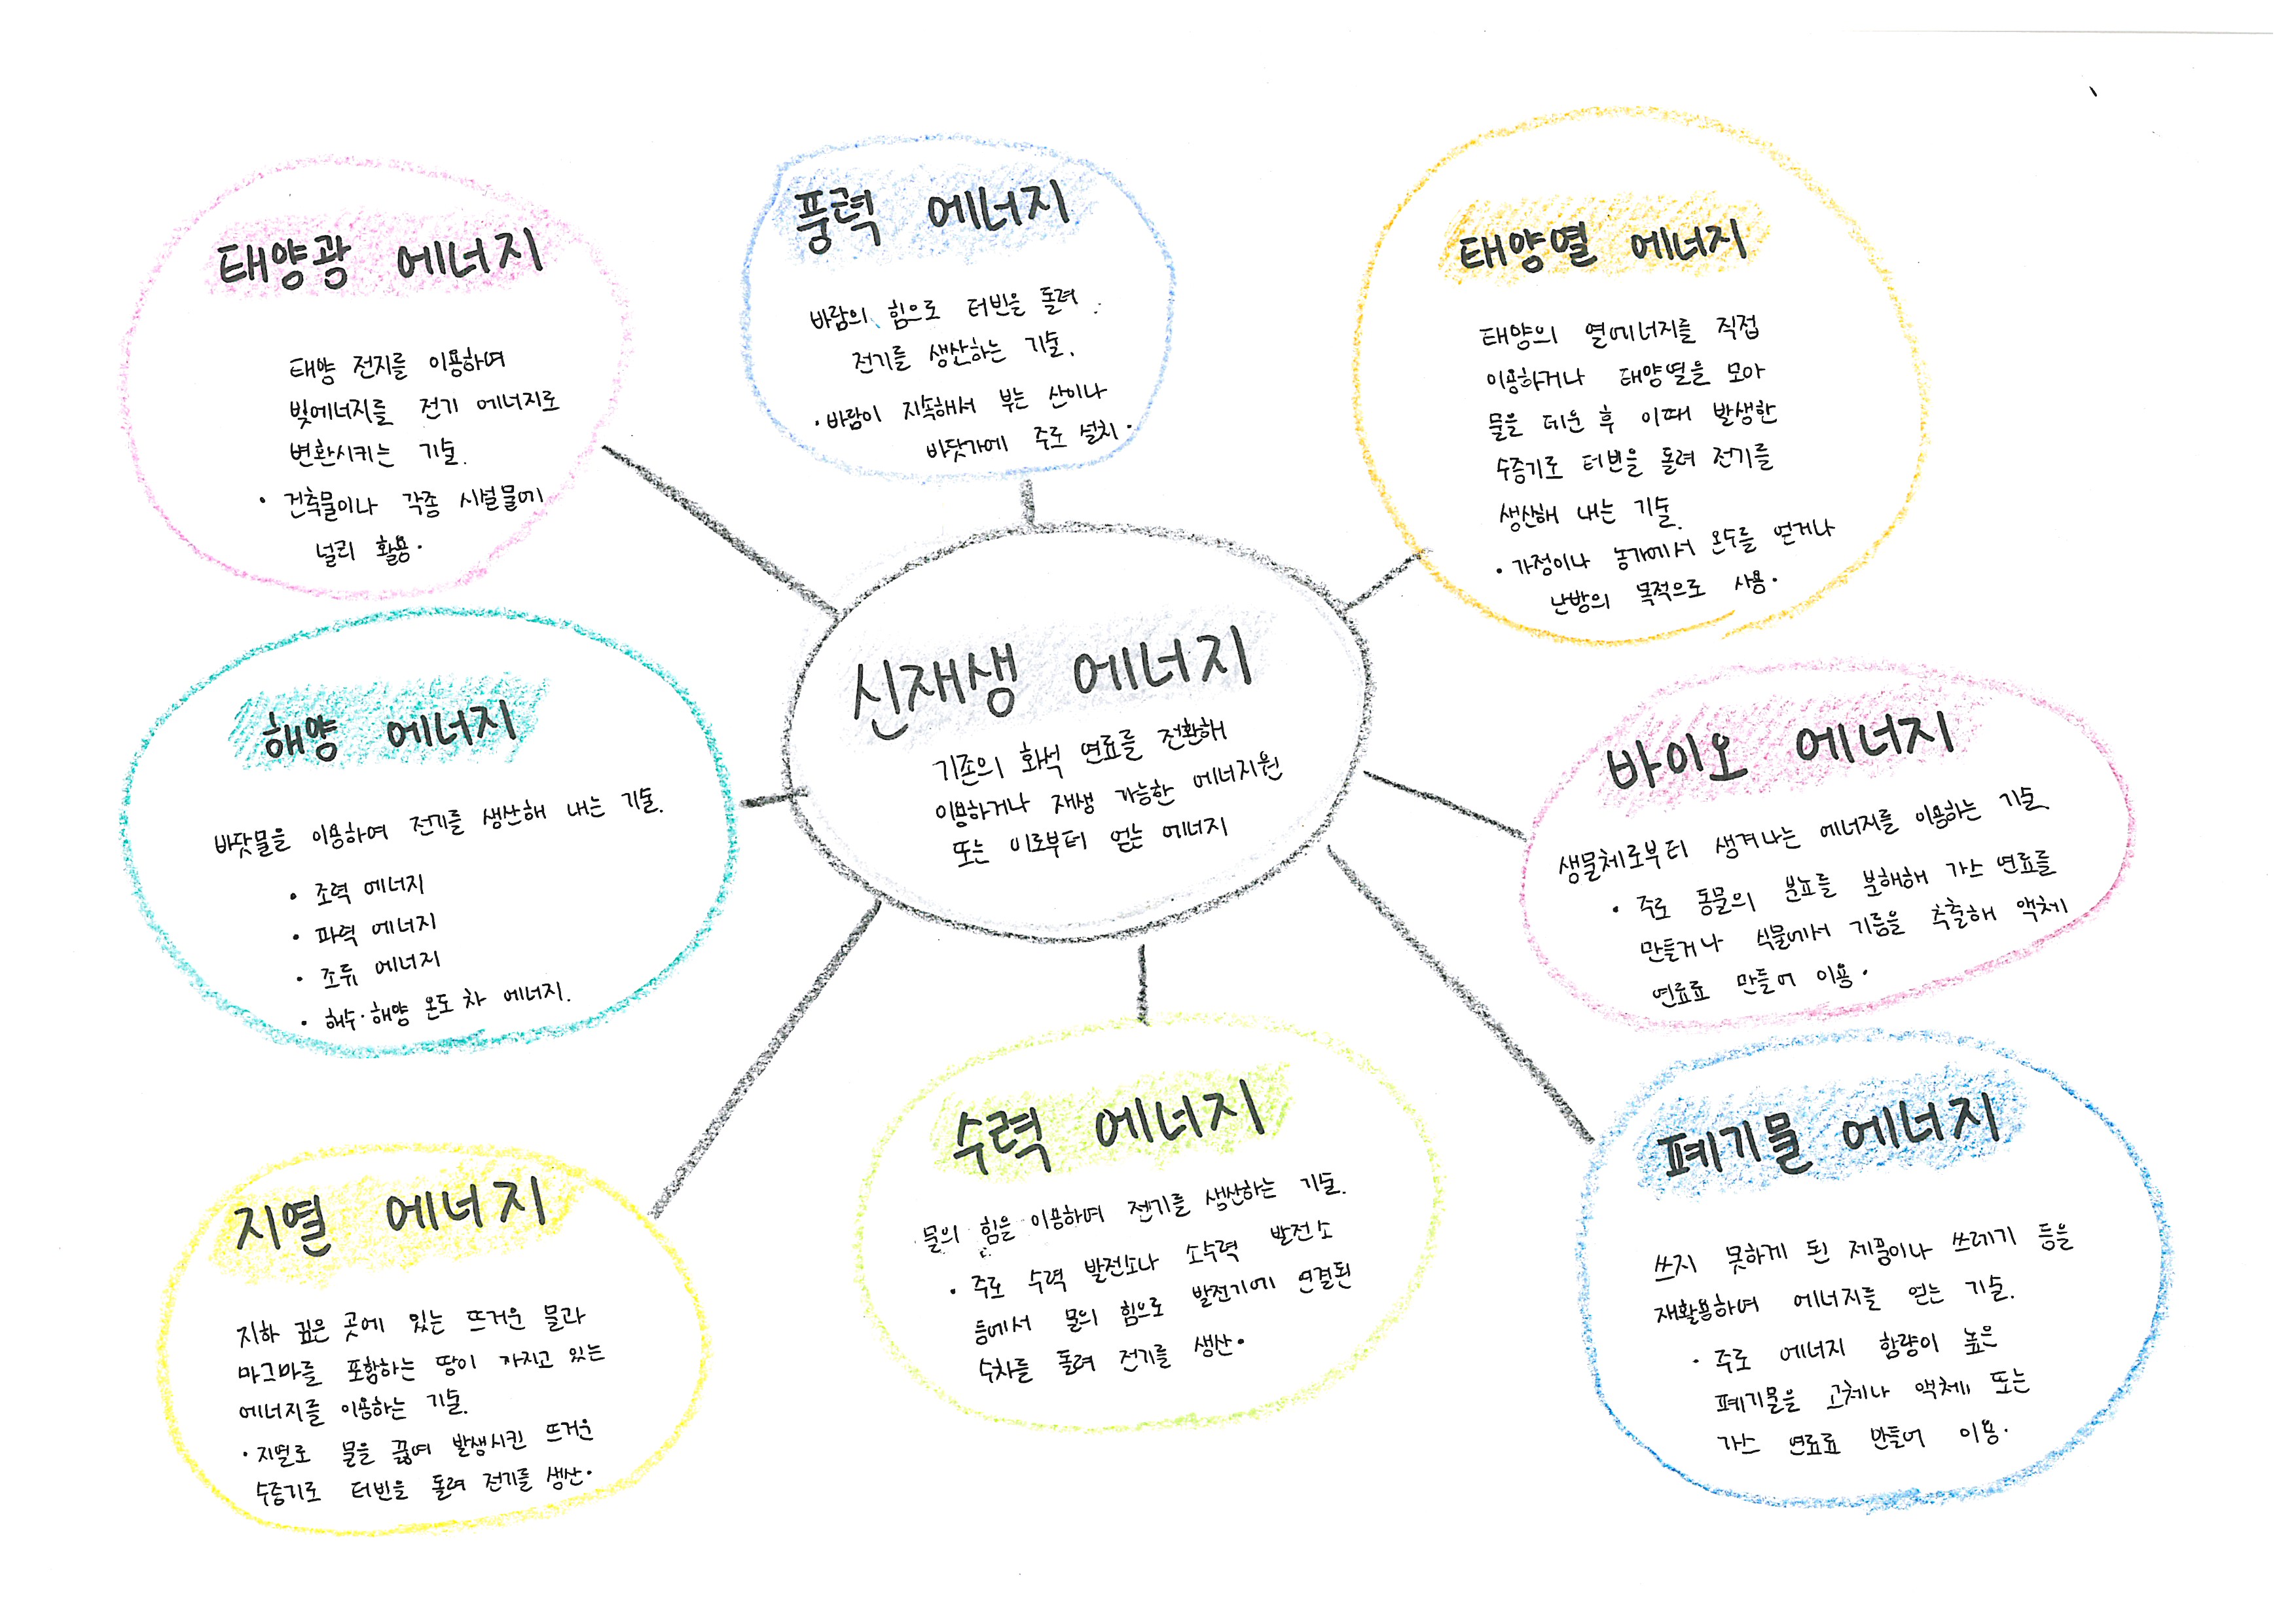 태양광 에너지
태양 전지를 이용하여
빛에너지를 전기 에너지로
변환시키는 기술.
• 건축물이나 각종 시설물에
널리 활용.
풍력 에너지
바람의 힘으로 터빈을 돌려
전기를 생산하는 기술.
• 바람이 지속해서 부는 산이나
바닷가에 주로 설치.
태양열 에너지
태양의 열에너지를 직접
이용하거나 태양열을 모아
물을 데운 후 이때 발생한
수증기로 터빈을 돌려 전기를
생산해 내는 기술.
• 가정이나 농가에서 온수를 얻거나
난방의 목적으로 사용.
신재생 에너지
기존의 화석 연료를 전환해
이용하거나 재생 가능한 에너지원
또는 이로부터 얻는 에너지
해양 에너지
바닷물을 이용하여 전기를 생산해 내는 기술.
• 조력 에너지
• 파력 에너지
• 조류 에너지
• 해수·해양 온도 차 에너지.
바이오 에너지
생물체로부터 생겨나는 에너지를 이용하는 기술
• 주로 동물의 분뇨를 분해해 가스 연료를
만들거나 식물에서 기름을 추출해 액체
연료로 만들어 이용.
지열 에너지
지하 깊은 곳에 있는 뜨거운 물과
마그마를 포함하는 땅이 가지고 있는
에너지를 이용하는 기술.
• 지열로 물을 끓여 발생시킨 뜨거운
수증기로 터빈을 돌려 전기를 생산.
수력 에너지
물의 힘을 이용하여 전기를 생산하는 기술.
• 주로 수력 발전소나 소수력 발전소
등에서 물의 힘으로 발전기에 연결된
수차를 돌려 전기를 생산.
폐기물 에너지
쓰지 못하게 된 제품이나 쓰레기 등을
재활용하여 에너지를 얻는 기술.
• 주로 에너지 함량이 높은
폐기물을 고체나 액체 또는
가스 연료로 만들어 이용.